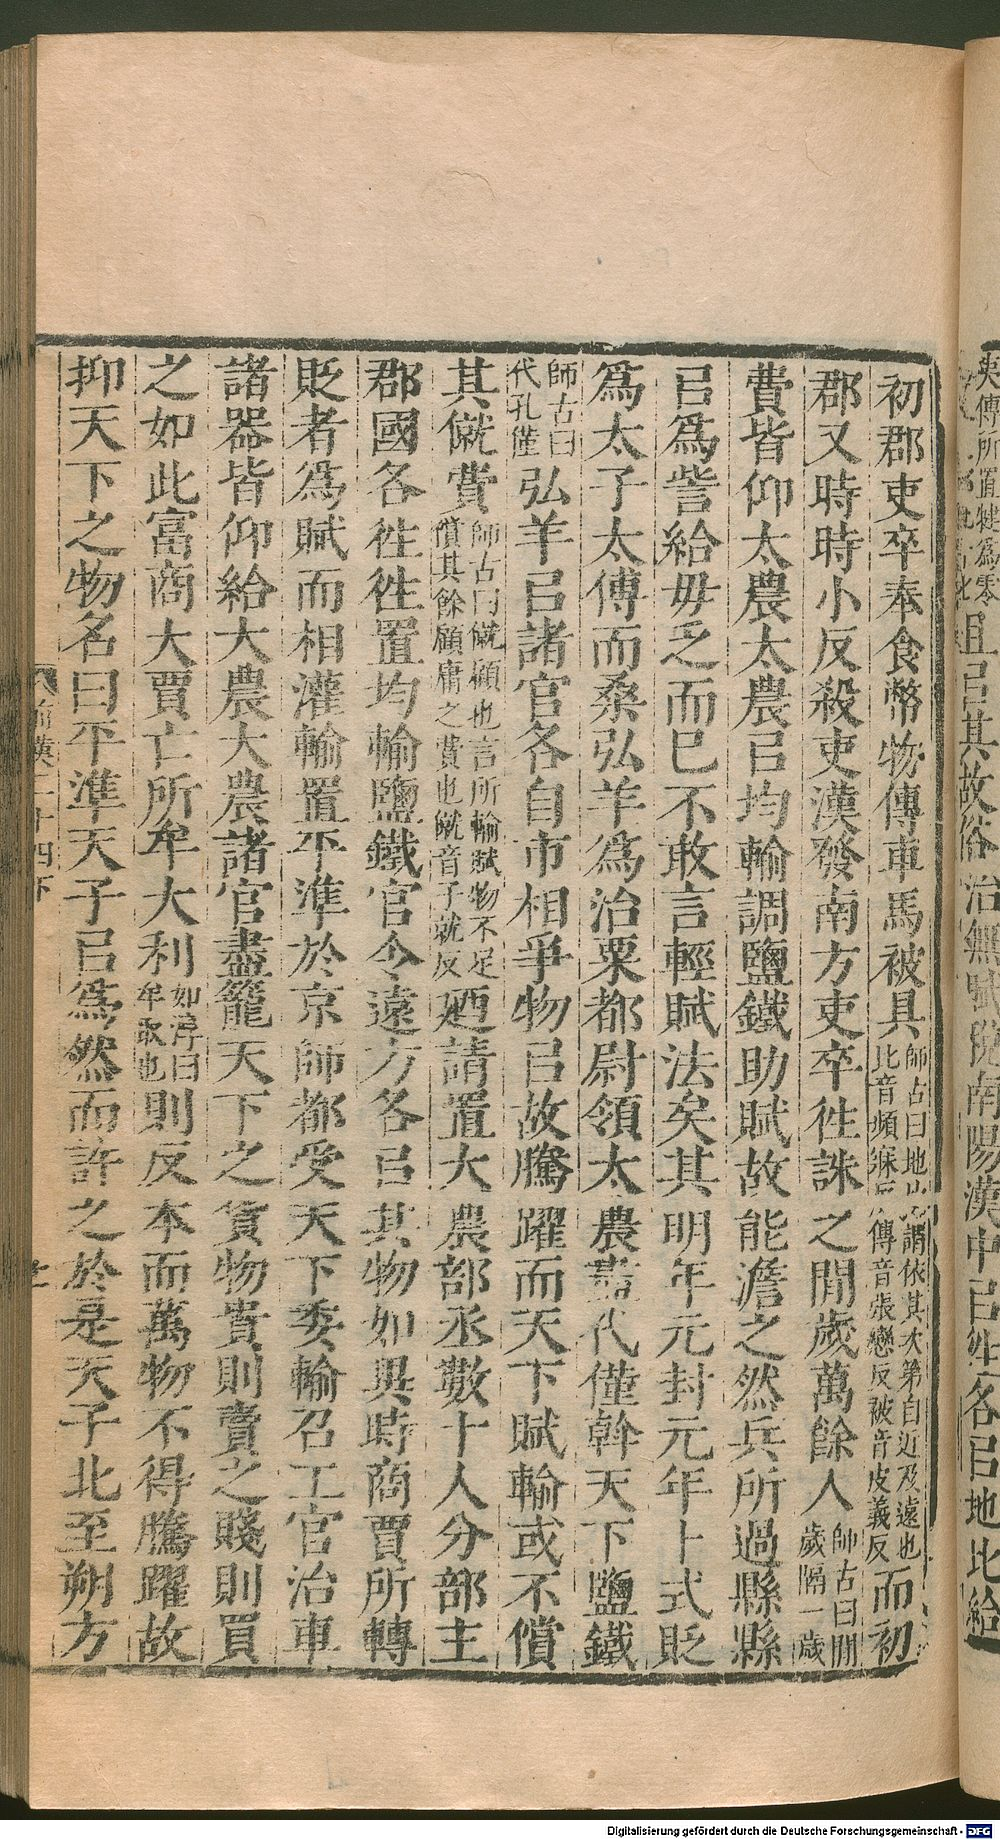 初郡吏卒奉食幣物傳車馬被具師古曰地比謂依其次第自近及遠也比音頻寐反傳音張戀反被音皮義反而初
郡又時時小反殺吏漢發南方吏卒往誅之閒歲萬餘人師古曰閒歲隔一歲
費皆仰大農大農㠯均輸調鹽鐵助賦故能澹之然兵所過縣縣
㠯爲訾給毋乏而已不敢言輕賦法矣其明年元封元年卜式貶
爲太子太傅而桑弘羊爲治粟都尉領大農盡代僅斡天下鹽鐵
師古曰代孔僅弘羊㠯諸官各自市相爭物㠯故騰躍而天下賦輸或不償
其僦費師古曰僦顧也言所輸賦物不足償其餘顧庸之費也僦音子就反迺請置大農部丞數十人分部主
郡國各往往置均輸鹽鐵官令遠方各㠯其物如異時商賈所轉
販者爲賦而相灌輸置平準於京師都受天下委輸召工官治車
諸器皆仰給大農大農諸官盡籠天下之貨物貴則賣之賤則買
之如此富商大賈亡所牟大利如淳曰牟取也則反本而萬物不得騰躍故
抑天下之物名曰平準天子㠯爲然而許之於是天子北至朔方
前漢二十四下
且㠯其故俗治無賦稅南陽漢中㠯往各㠯地比給
Digitalisierung gefördert durch die Deutsche Forschungsgemeinschaft - DFG